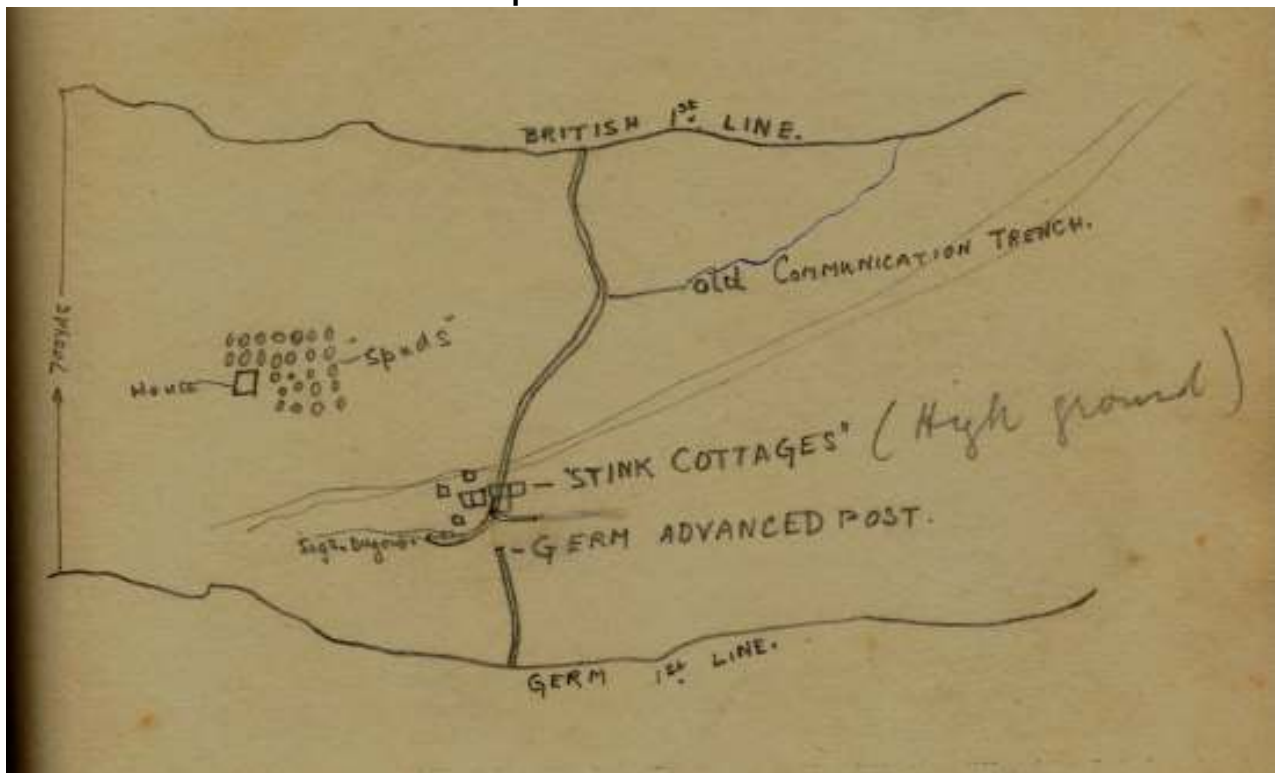 BRITISH 1st. LINE.
Old COMMUNICATION TRENCH.
700 YDS
"Spuds"
HOUSE
"STINK COTTAGES" (High ground)
GERM ADVANCED POST.
GERM 1st. LINE.